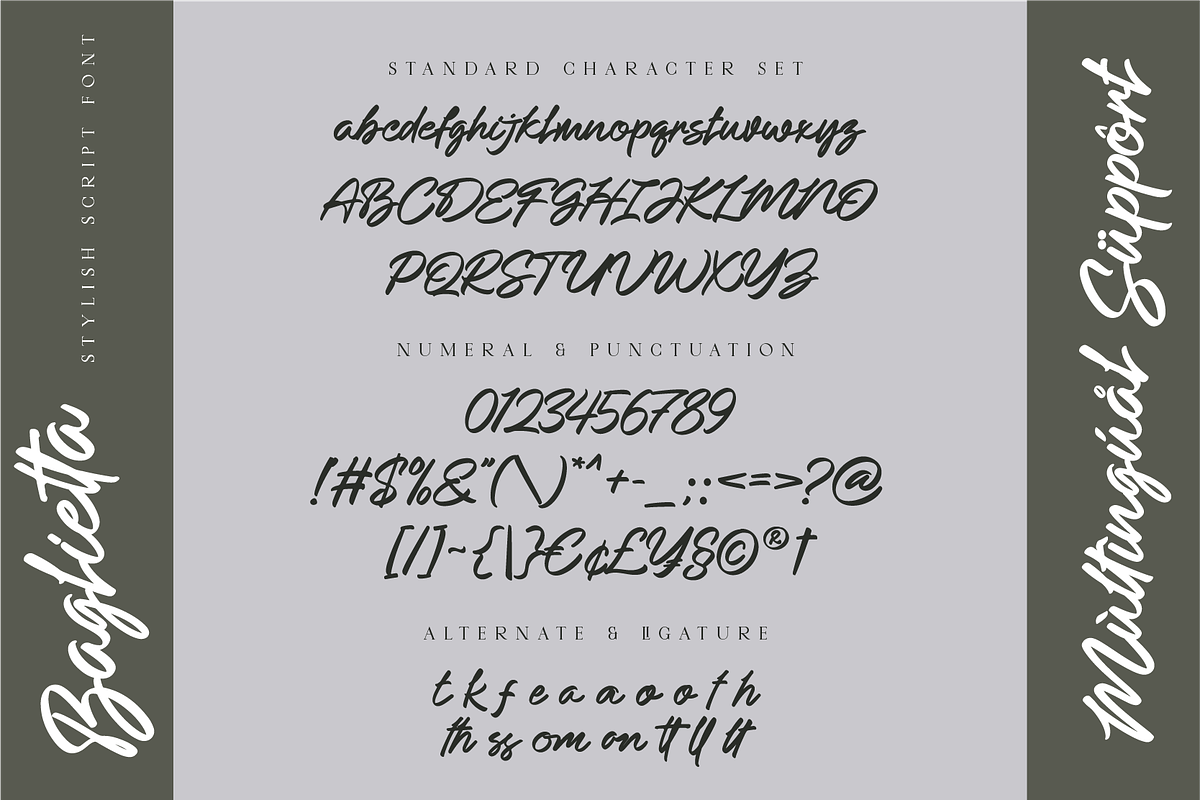 Baglietta
STYLISH SCRIPT FONT
STANDARD CHARACTER SET
abcdefghijklmnopqrstuvwxyz
ABCDEFGHIJKLMNO
PQRSTUVWXYZ
NUMERAL & PUNCTUATION
0123456789
!#$%&"(\)*^+-_;:<=>?@
[/]~{|}€¢£¥§©®†
ALTERNATE & LIGATURE
t k f e a a o o t h
th ss om on tt ll lt
Mùltingúåt Süppôrt